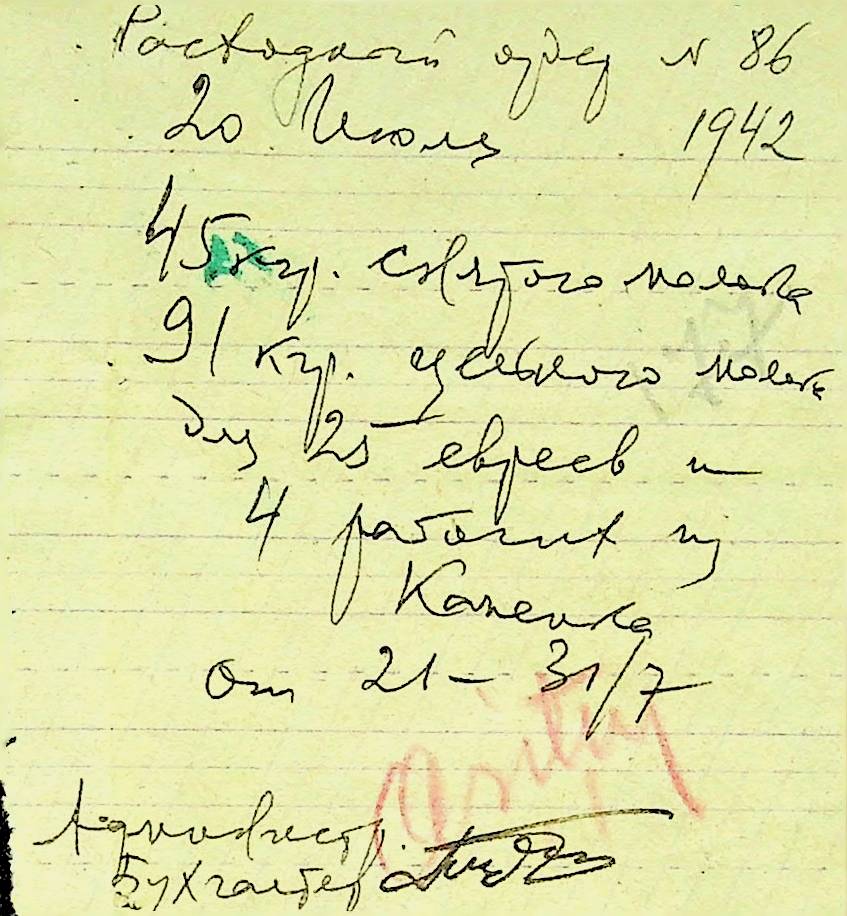 Расходный ордер N 86
20 Июля 1942
45 кгр. снятого молока
91 кгр. цельного молока
для 25 евреев и
4 рабочих из
Каменка
от 21 – 31/7
Администр.
Бухгалтер